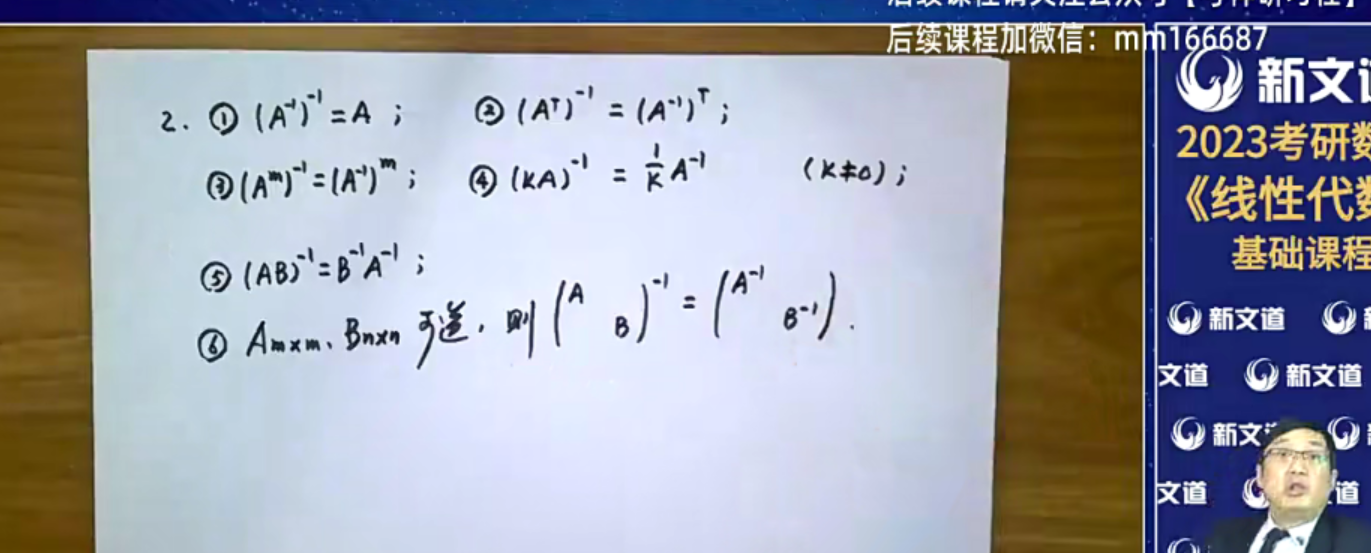 后续课程加微信：mm166687
2. ① (A⁻¹)⁻¹ = A ; ② (Aᵀ)⁻¹ = (A⁻¹)ᵀ ;
③ (Aᵐ)⁻¹ = (A⁻¹)ᵐ ; ④ (KA)⁻¹ = 1/K A⁻¹ (K≠0) ;
⑤ (AB)⁻¹ = B⁻¹A⁻¹ ;
⑥ Am×m、Bn×n 可逆，则 (A B)⁻¹ = (A⁻¹ B⁻¹) .
新文道
2023考研数
《线性代数
基础课程
新文道
文道 新文道
新文
文道 道